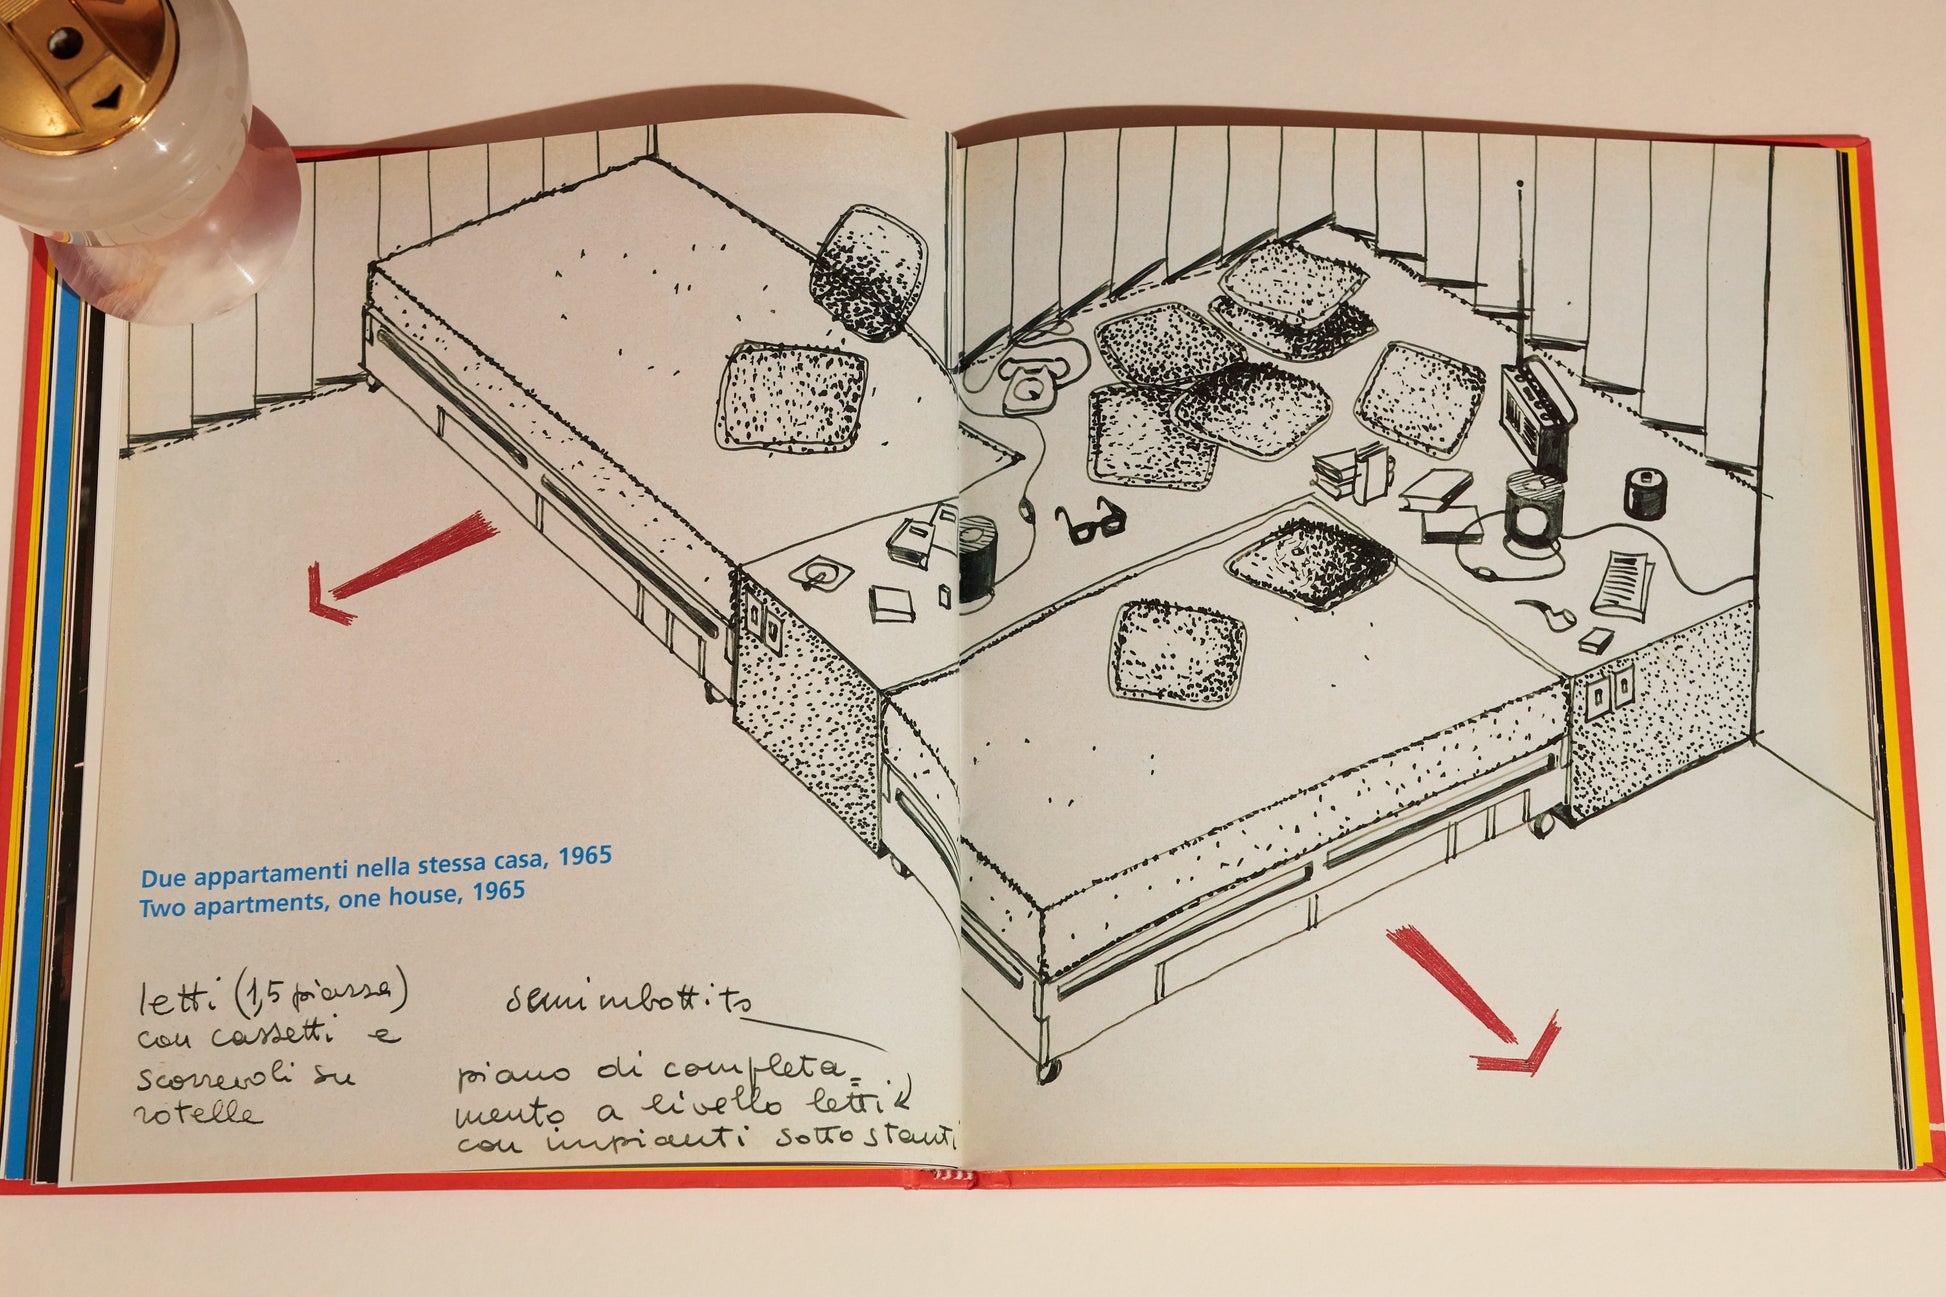 Due appartamenti nella stessa casa, 1965
Two apartments, one house, 1965
letti (1,5 piazza)
con cassetti e
scorrevoli su
rotelle
semimbottito
piano di completa=
mento a livello letti
con impianti sottostanti